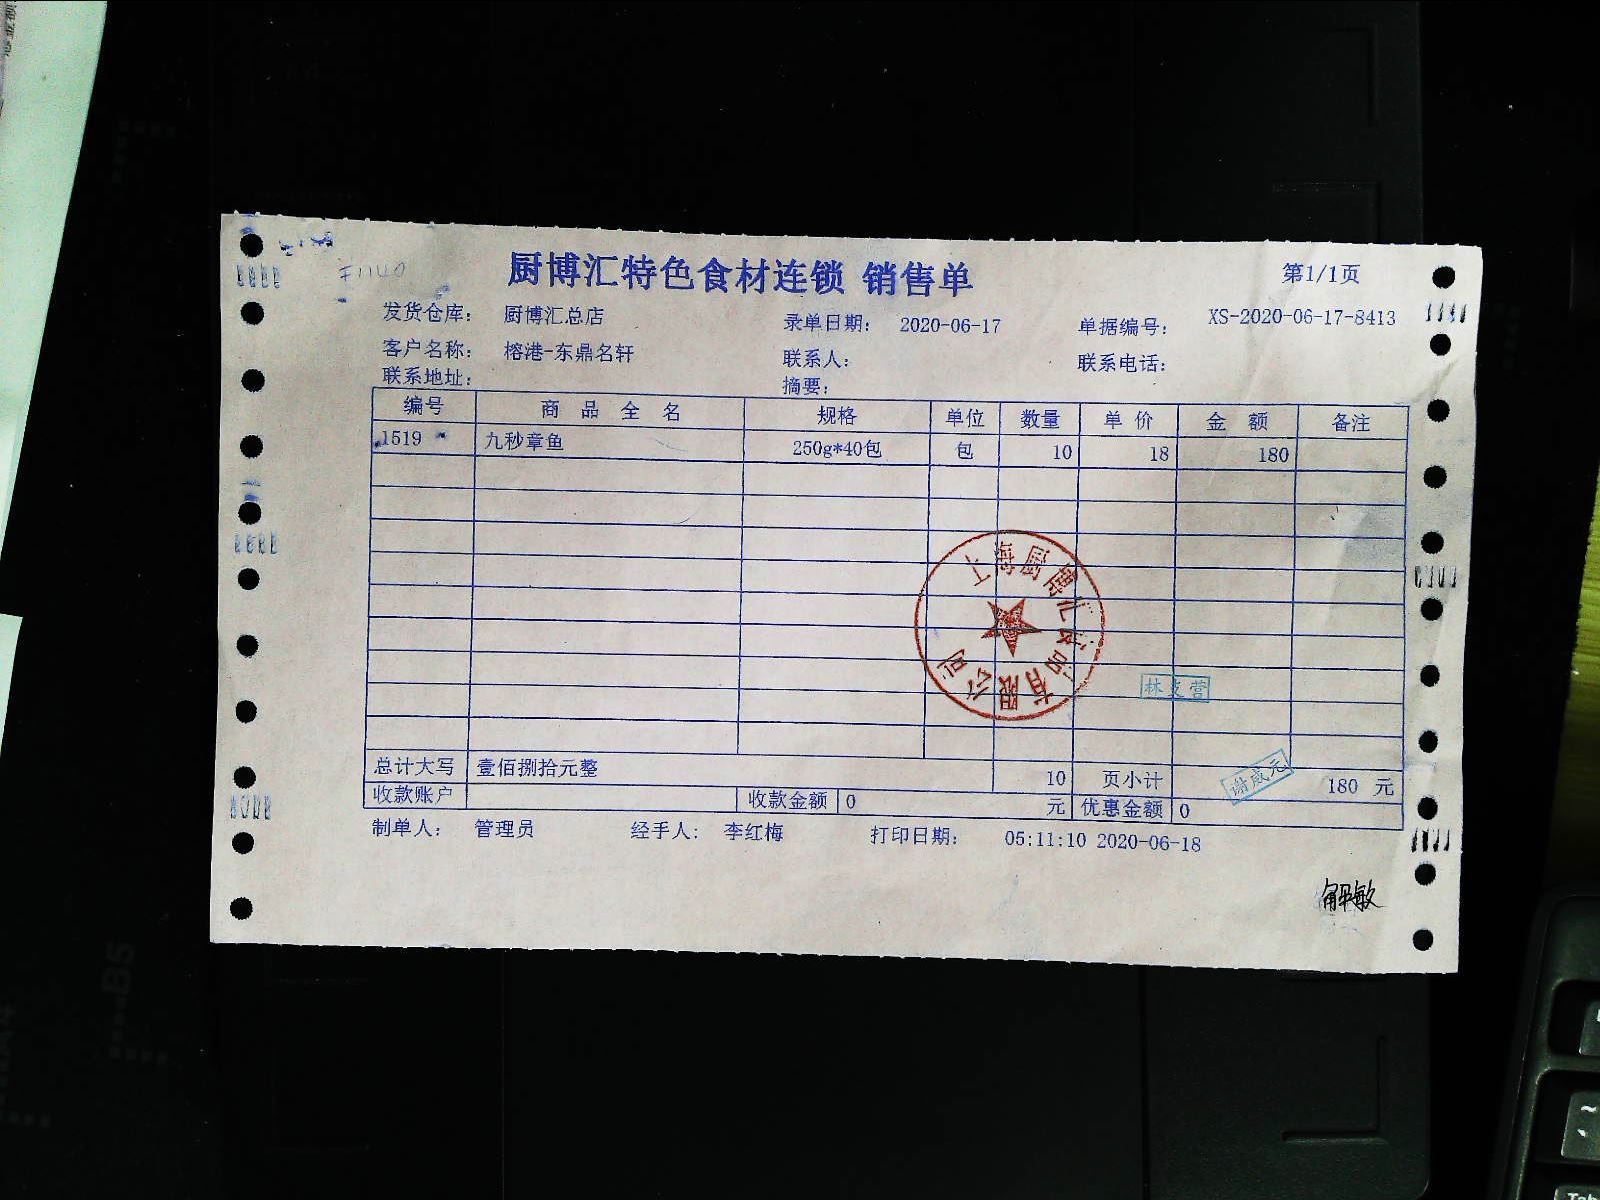 厨博汇特色食材连锁 销售单
第1/1页
发货仓库： 厨博汇总店 录单日期： 2020-06-17 单据编号： XS-2020-06-17-8413
客户名称： 榕港-东鼎名轩 联系人： 联系电话：
联系地址： 摘要：
编号 商品全名 规格 单位 数量 单价 金额 备注
1519 九秒章鱼 250g*40包 包 10 18 180
上海厨博汇食品有限公司
林支营
总计大写 壹佰捌拾元整 10 页小计 180 元
谢成元
收款账户 收款金额 0 元 优惠金额 0
制单人： 管理员 经手人： 李红梅 打印日期： 05:11:10 2020-06-18
解敏
B5